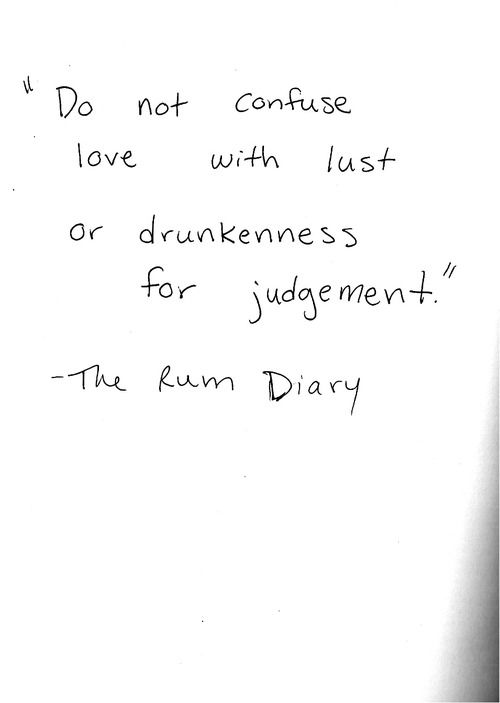 "Do not confuse
love with lust
or drunkenness
for judgement."
-The Rum Diary